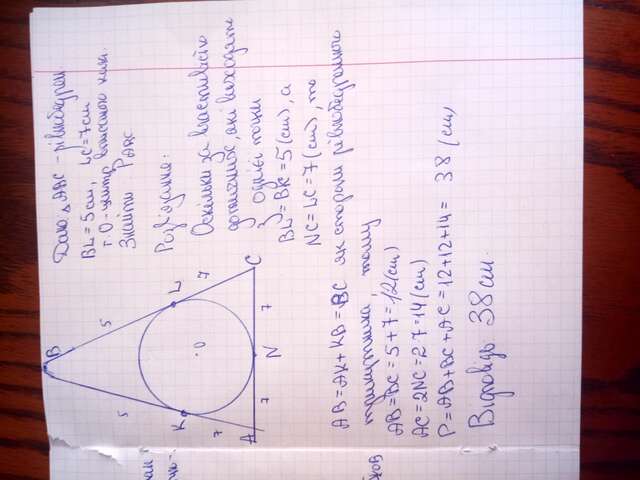 Дано: △ABC - рівнобедрен
BL = 5см, LC = 7см
т. О - центр вписаного кола.
Знайти P ABC
Розв'язання:
Оскільки за властивістю
дотичних, які виходять
з однієї точки
BL = BK = 5 (см), а
NC = LC = 7 (см), то
B
5
5
K
L
7
7
O
A
7
N
7
C
AB = AK + KB = BC як сторони рівнобедреного
трикутника, тому
AB = BC = 5 + 7 = 12 (см)
AC = 2NC = 2·7 = 14 (см)
P = AB + BC + AC = 12 + 12 + 14 = 38 (см)
Відповідь 38 см.
ков